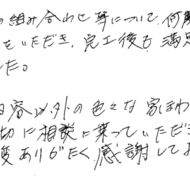 の組み合わせ等について、何度
をいただき、完工後も満足
した。
内容以外の色々な家まわ
切に相談に乗っていただ
変ありがたく感謝してお